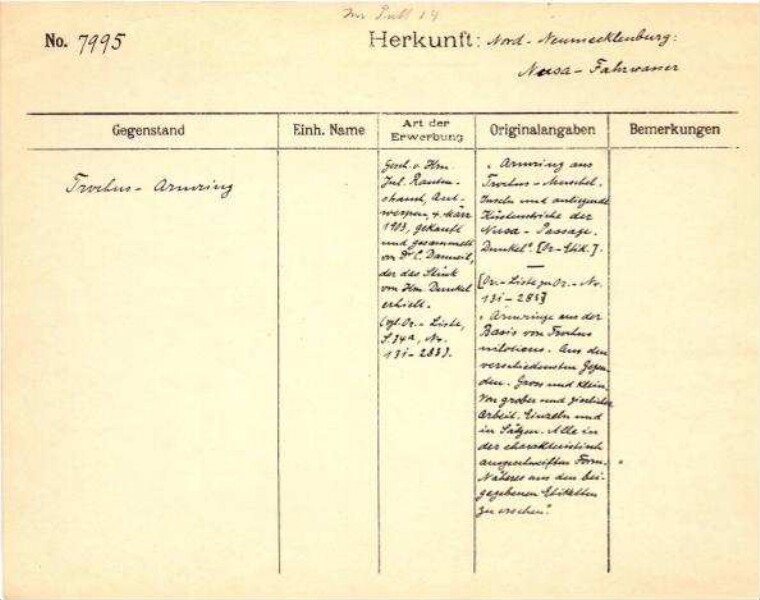 No. 7995
Herkunft: Nord-Neumecklenburg:
Nusa-Fahrwasser
Gegenstand
Einh. Name
Art der
Erwerbung
Originalangaben
Bemerkungen
Trochus-Armring
Gesch. v. Hrn.
Jul. Rauten-
strauch, Ant-
werpen, 4. März
1913, gekauft
und gesammelt
von Dr. C. Danneil,
der das Stück
von Hrn. Dunkel
erhielt.
(vgl. Or.-Liste,
S. 34a, No.
131-283).
„Armring aus
Trochus-Muschel.
Inseln und anliegende
Küstenstriche der
Nusa-Passage.
Dunkel“. [Or-Etik.].
[Or.-Liste zu Or.-No.
131-283]
„Armringe aus der
Basis von Trochus
niloticus. Aus den
verschiedensten Gegen-
den. Gross und klein.
Von grober und zierlicher
Arbeit. Einzeln und
in Sätzen. Alle in
der charakteristisch
ausgeschweiften Form.
Näheres aus den bei-
gegebenen Etiketten
zu ersehen“.